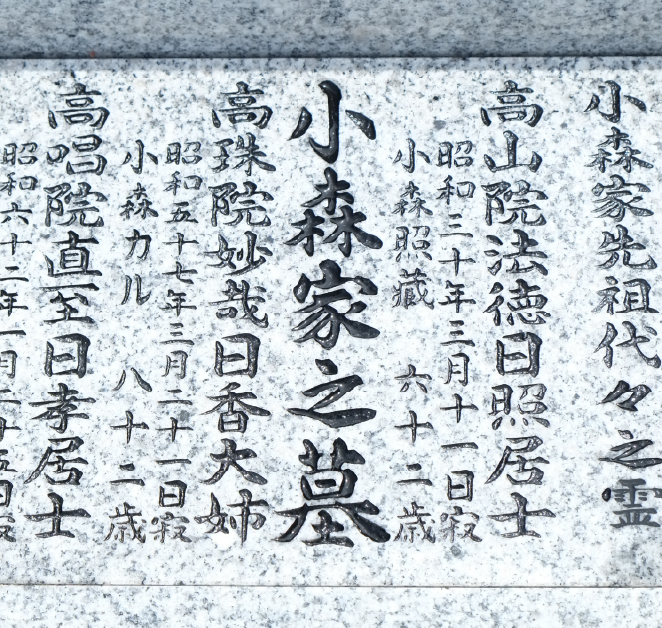 小森家先祖代々之霊
高山院法徳日照居士
昭和三十年三月十一日寂
小森照藏 六十二歳
小森家之墓
高珠院妙哉日香大姉
昭和五十七年三月二十一日寂
小森カル 八十二歳
高唱院直至日孝居士
昭和六十二年一月二十五日寂